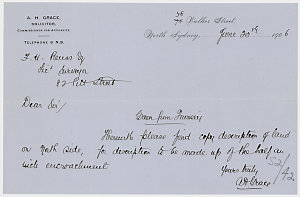 A. H. GRACE,
SOLICITOR,
COMMISSIONER FOR AFFIDAVITS.
TELEPHONE 6 N.S.
78 Walker Street,
North Sydney, June 20th 1906
F. H. Reuss Esq
Lic: Surveyor
82 Pitt Street
Dear Sir/
from
Herewith please find copy description of land
on North side, for description to be made up of the
inch encroachment
Yours truly
A H Grace
52/42